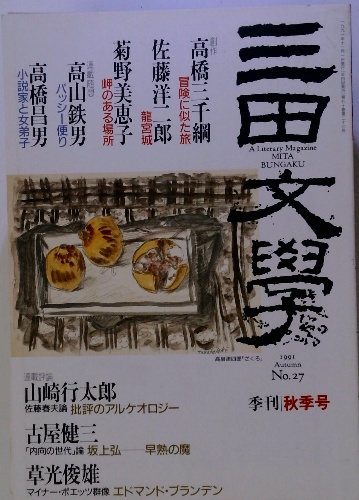 三田文學
A Literary Magazine
MITA
BUNGAKU
創作
高橋三千綱
冒険に似た旅
佐藤洋二郎
龍宮城
菊野美恵子
岬のある場所
連載随想
高山鉄男
パッシー便り
高橋昌男
小説家と女弟子
1991
Autumn
No.27
季刊 秋季号
連載評論
山崎行太郎
佐藤春夫論 批評のアルケオロジー
古屋健三
「内向の世代」論 坂上弘──早熟の魔
草光俊雄
マイナー・ポエッツ群像 エドマンド・ブランデン